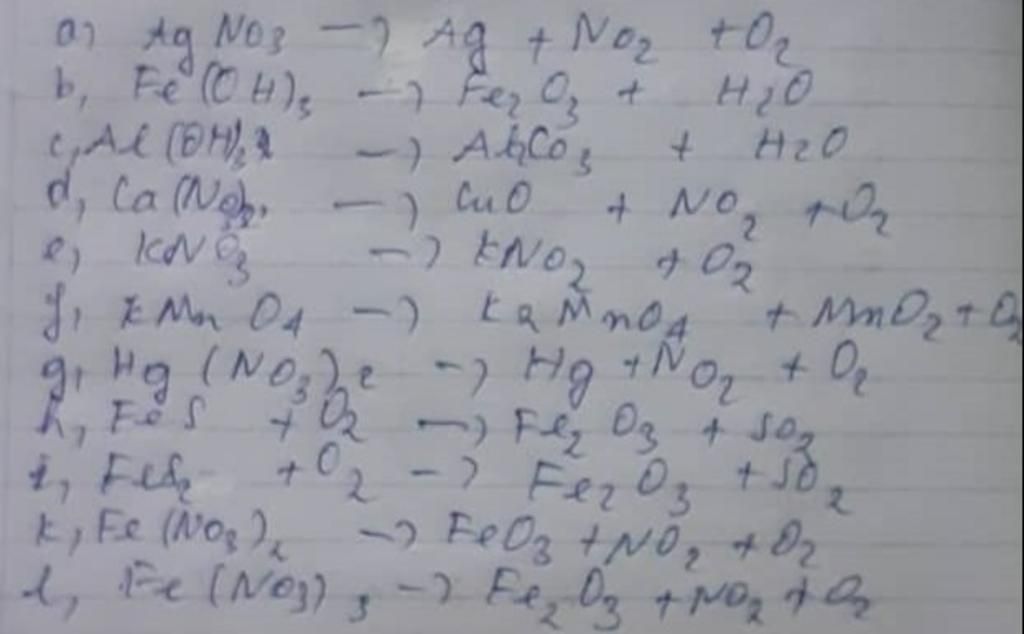 a, AgNO3 → Ag + NO2 + O2
b, Fe(OH)3 → Fe2O3 + H2O
c, Al(OH)3 → + H2O
d, Ca(NO3)2 → CuO + NO2 + O2
e, KNO3 → KNO2 + O2
f, KMnO4 → K2MnO4 + MnO2 + O2
g, Hg(NO3)2 → Hg + NO2 + O2
h, FeS + O2 → Fe2O3 + SO2
i, FeS2 + O2 → Fe2O3 + SO2
k, Fe(NO3)2 → FeO3 + NO2 + O2
l, Fe(NO3)3 → Fe2O3 + NO2 + O2